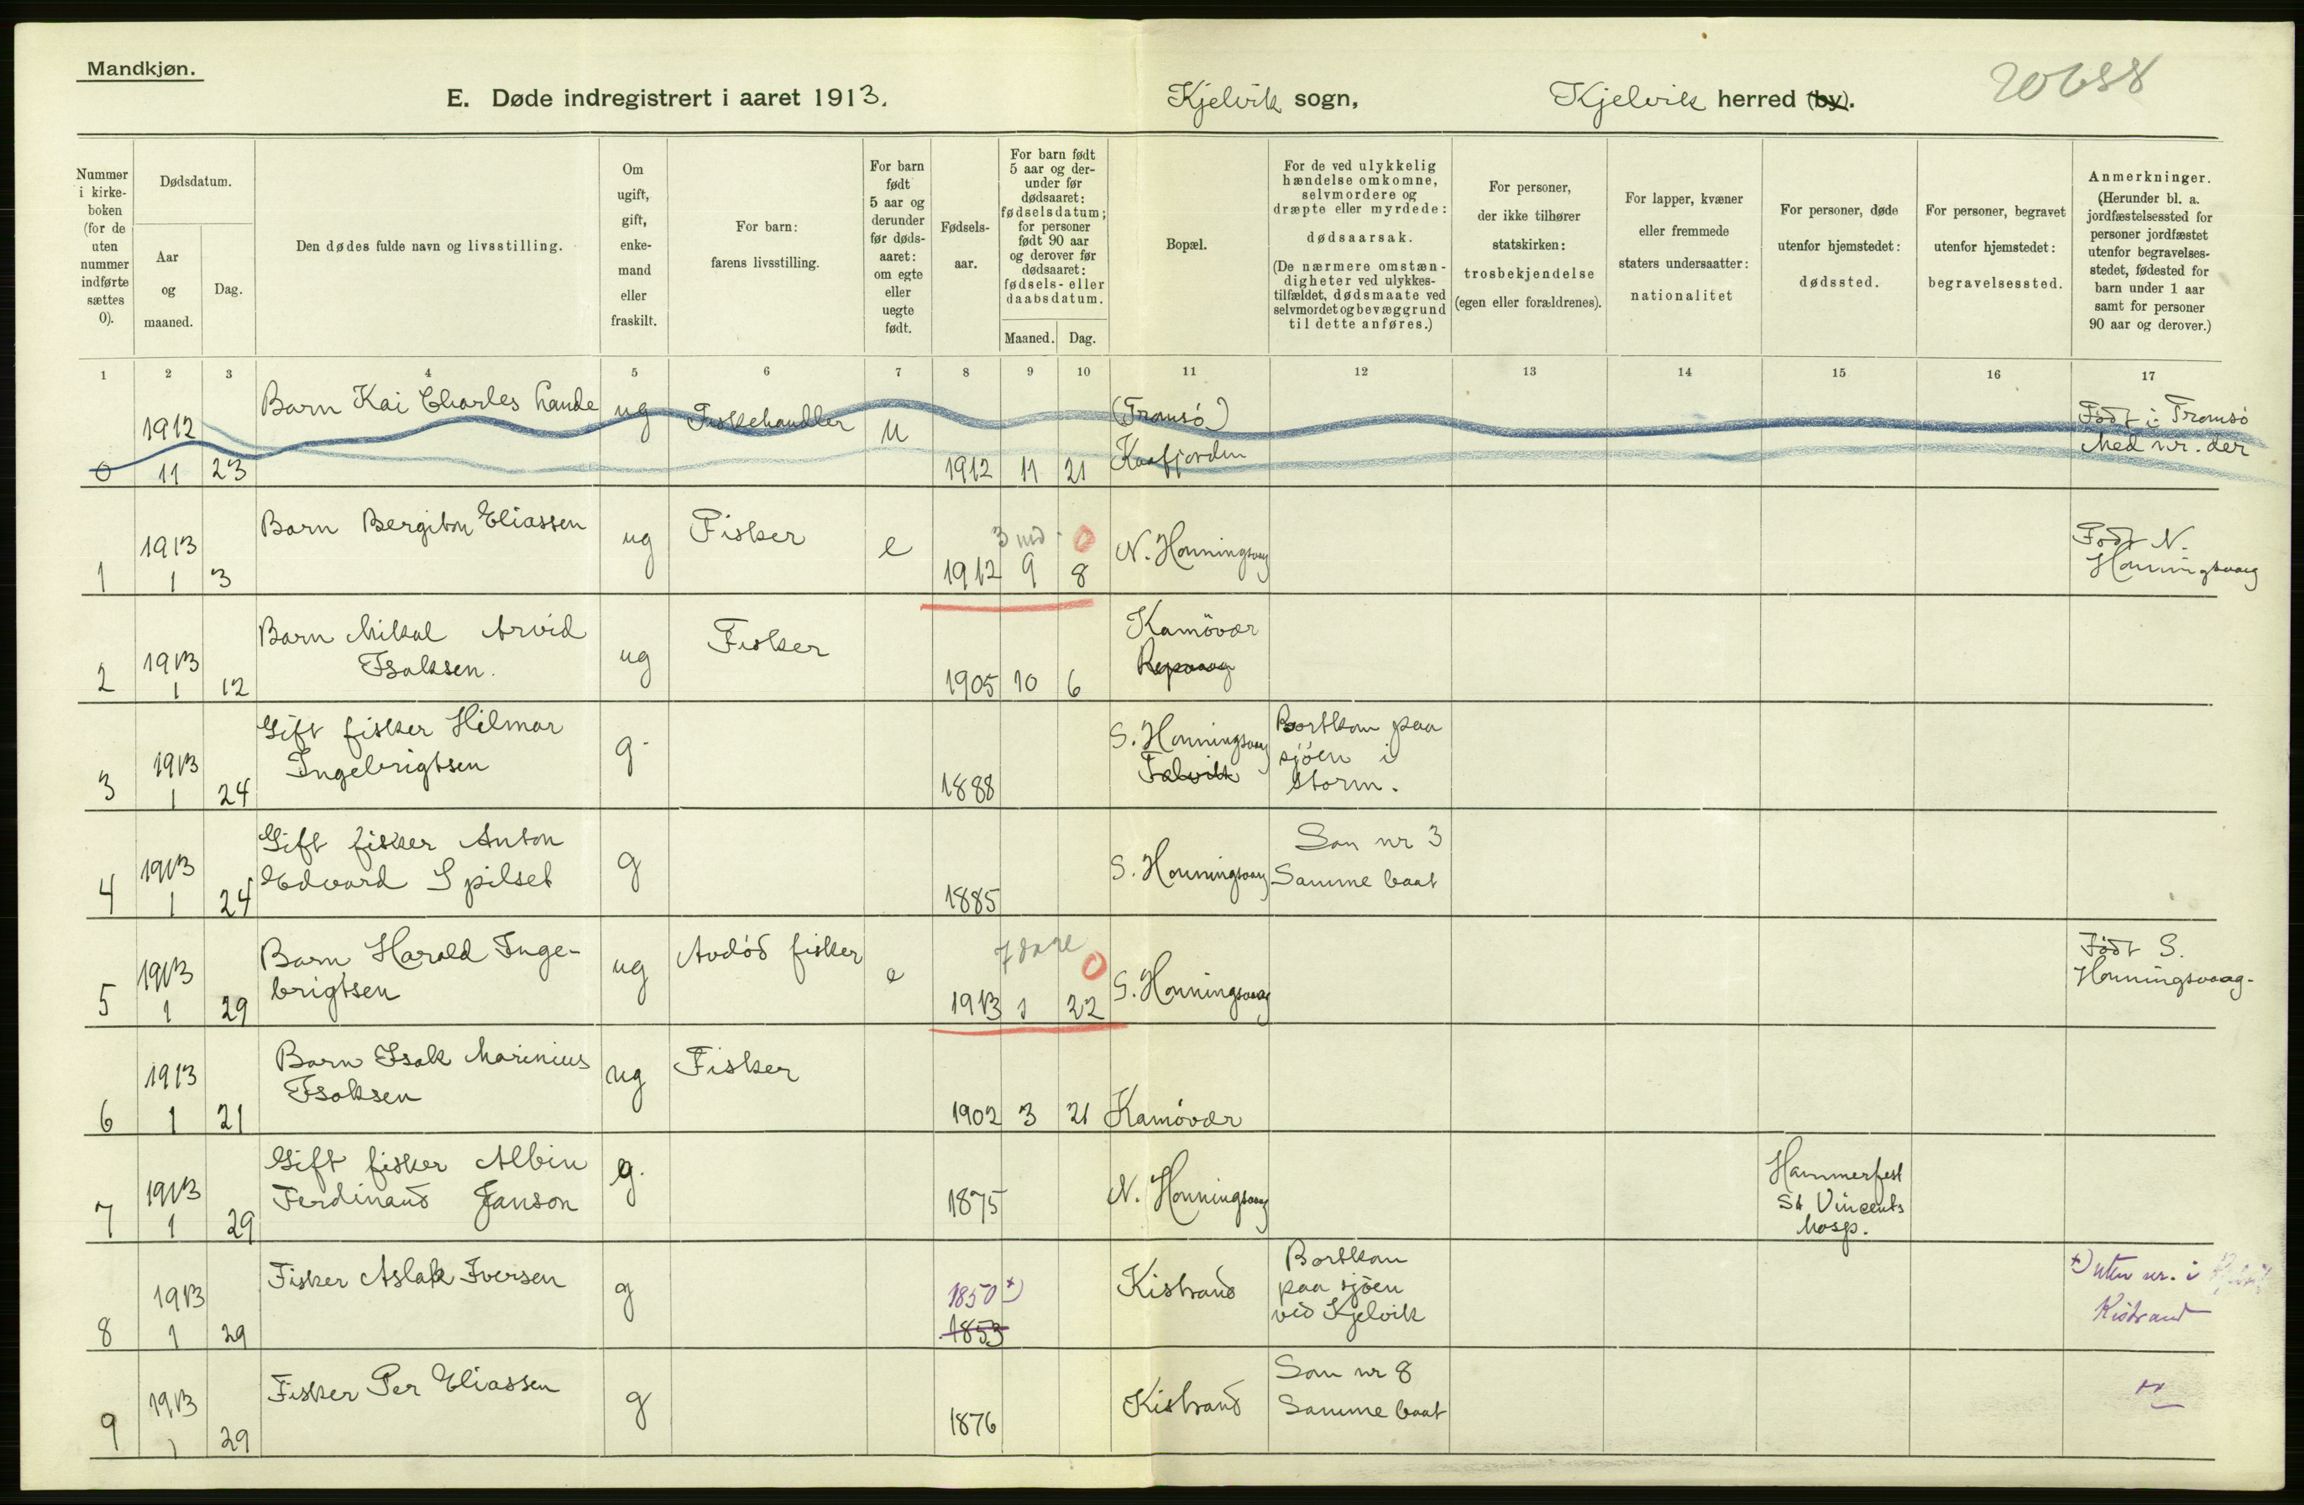 Mandkjøn.
E. Døde indregistrert i aaret 1913.
Kjelvik sogn,
Kjelvik herred (by).
Nummer i kirke-boken (for de uten nummer indførte sættes 0).
Dødsdatum.
Aar og maaned.
Dag.
Den dødes fulde navn og livsstilling.
Om ugift, gift, enke-mand eller fraskilt.
For barn: farens livsstilling.
For barn født 5 aar og derunder før døds-aaret: om egte eller uegte født.
Fødsels-aar.
For barn født 5 aar og der-under før dødsaaret: fødselsdatum; for personer født 90 aar og derover før dødsaaret: fødsels- eller daabsdatum.
Maaned. Dag.
Bopæl.
For de ved ulykkelig hændelse omkomne, selvmordere og dræpte eller myrdede: dødsaarsak. (De nærmere omstæn-digheter ved ulykkes-tilfældet, dødsmaate ved selvmordet og bevæggrund til dette anføres.)
For personer, der ikke tilhører statskirken: trosbekjendelse (egen eller forældrenes).
For lapper, kvæner eller fremmede staters undersaatter: nationalitet
For personer, døde utenfor hjemstedet: dødssted.
For personer, begravet utenfor hjemstedet: begravelsessted.
Anmerkninger. (Herunder bl. a. jordfæstelsessted for personer jordfæstet utenfor begravelses-stedet, fødested for barn under 1 aar samt for personer 90 aar og derover.)
1 2 3 4 5 6 7 8 9 10 11 12 13 14 15 16 17
0 1912 11 23 Barn Kai Charles Hande ug Fiskehandler u 1912 11 21 (Tromsø) Kaafjorden Født i Tromsø Med nr. der
1 1913 1 3 Barn Bergiton Eliassen ug Fisker e 3 md 0 1912 9 8 N. Honningsvaag Født N. Honningsvaag
2 1913 1 12 Barn Mikal Arvid Isaksen. ug Fisker 1905 10 6 Kamøvær Repvaag
3 1913 1 24 Gift fisker Hilmar Ingebrigtsen g. 1888 S. Honningsvaag Talvik Bortkom paa sjøen i storm.
4 1913 1 24 Gift fisker Anton Edvard Spilset g 1885 S. Honningsvaag Som nr 3 Samme baat
5 1913 1 29 Barn Harald Inge-brigtsen ug Avdød fisker e 7 dage 0 1913 1 22 S. Honningsvaag Født S. Honningsvaag.
6 1913 1 21 Barn Isak Marinius Isaksen ug Fisker 1902 3 21 Kamøvær
7 1913 1 29 Gift fisker Albin Ferdinand Janson g. 1875 N. Honningsvaag Hammerfest St Vincents hosp.
8 1913 1 29 Fisker Aslak Iversen g 1850 +) 1853 Kistrand Bortkom paa sjøen ved Kjelvik +) uten nr. i Kistrand
9 1913 1 29 Fisker Per Eliassen g 1876 Kistrand Som nr 8 Samme baat